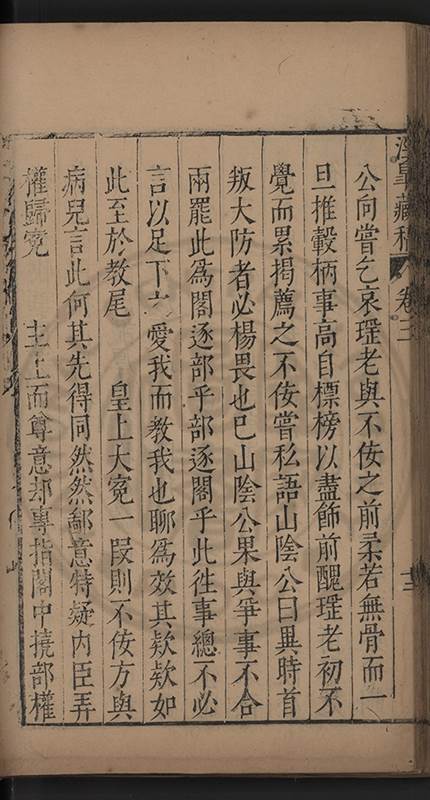 公向嘗乞哀瑆老與不佞之前柔若無骨而一
旦推轂柄事高自標榜以盡飾前醜瑆老初不
覺而累揭薦之不佞嘗私語山陰公曰異時首
叛大防者必楊畏也已山陰公果與爭事不合
兩罷此為閣逐部乎部逐閣乎此徃事總不必
言以足下之愛我而教我也聊為效其欵欵如
此至於教尾　皇上大寃一段則不佞方與
病兒言此何其先得同然然鄙意特疑內臣弄
權歸寃　主上而尊意却專指閣中撓部權
藏稿　卷二